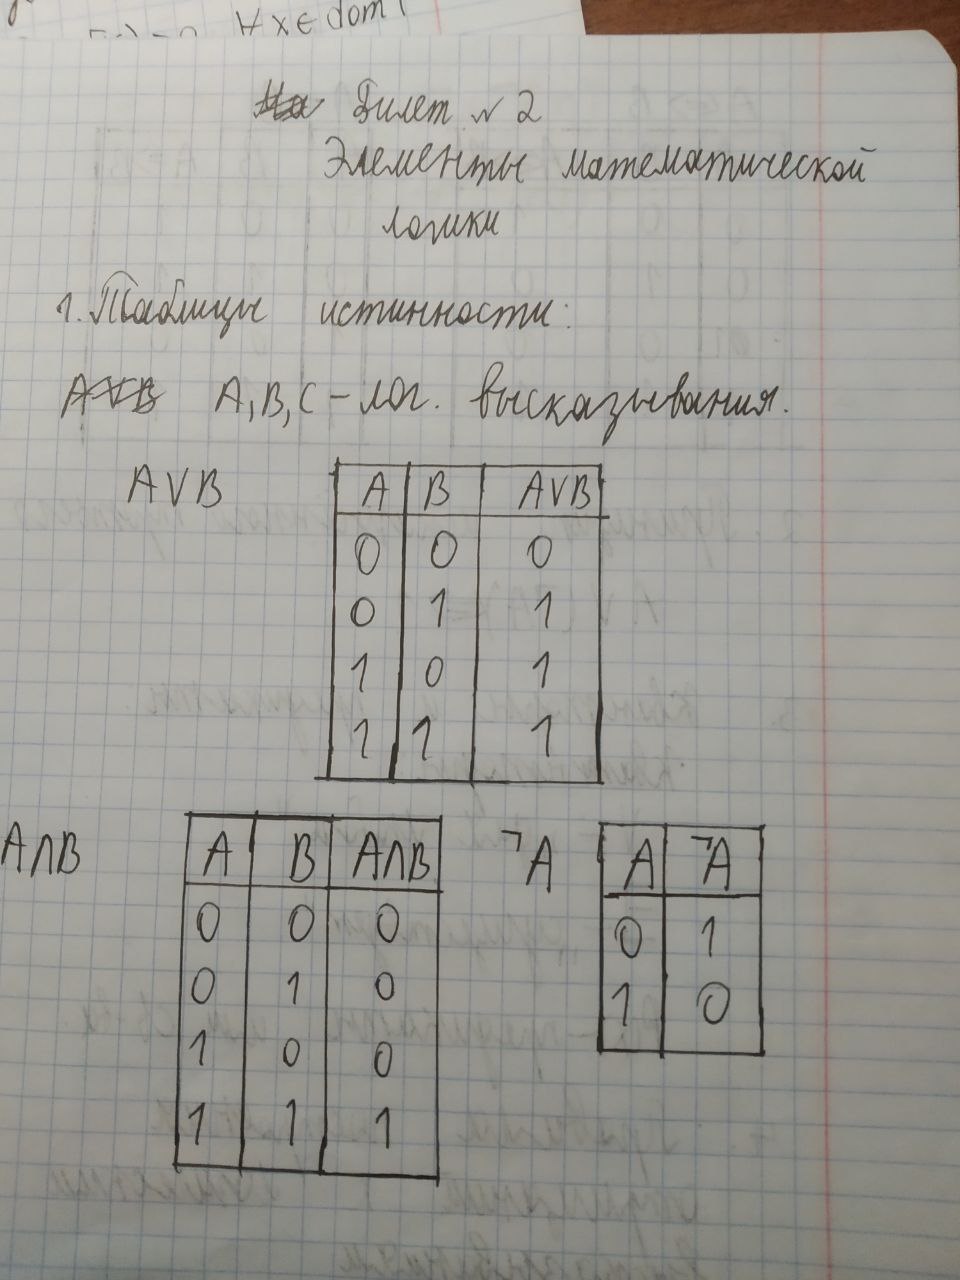 ∀x∈dom f
Билет № 2
Элементы математической
логики
1. Таблицы истинности:
A, B, C - лог. высказывания.
A∨B
A B A∨B
0 0 0
0 1 1
1 0 1
1 1 1
A∧B
A B A∧B
0 0 0
0 1 0
1 0 0
1 1 1
¬A
A ¬A
0 1
1 0